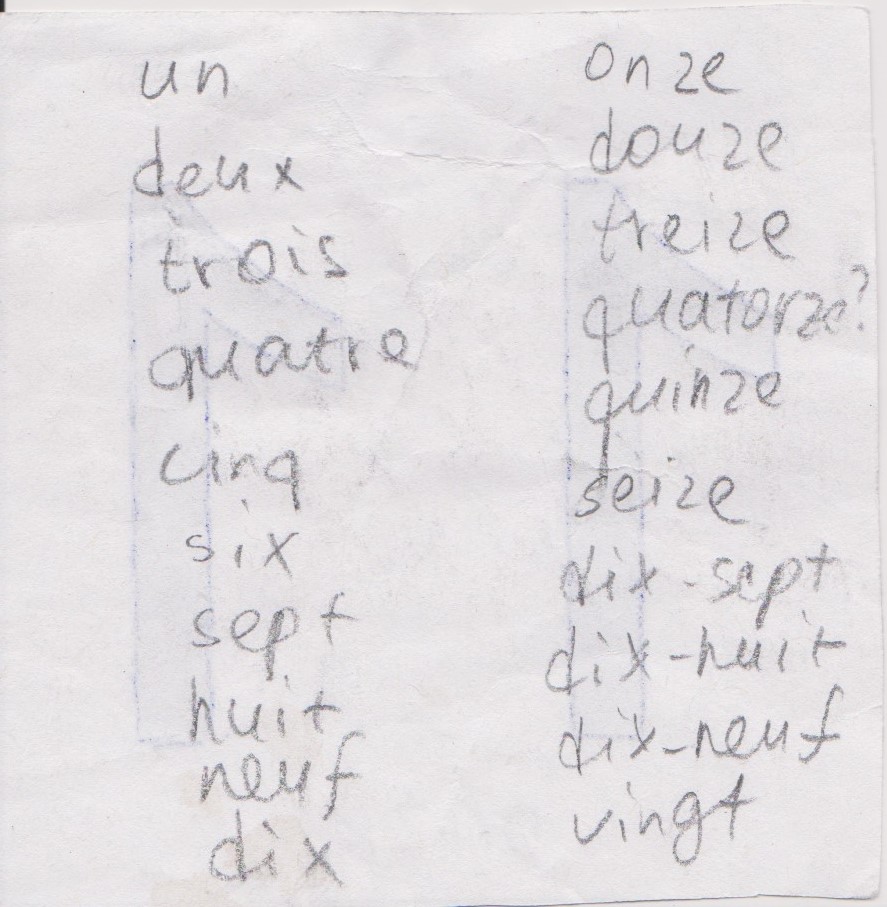 un
deux
trois
quatre
cinq
six
sept
huit
neuf
dix
onze
douze
treize
quatorze?
quinze
seize
dix-sept
dix-huit
dix-neuf
vingt